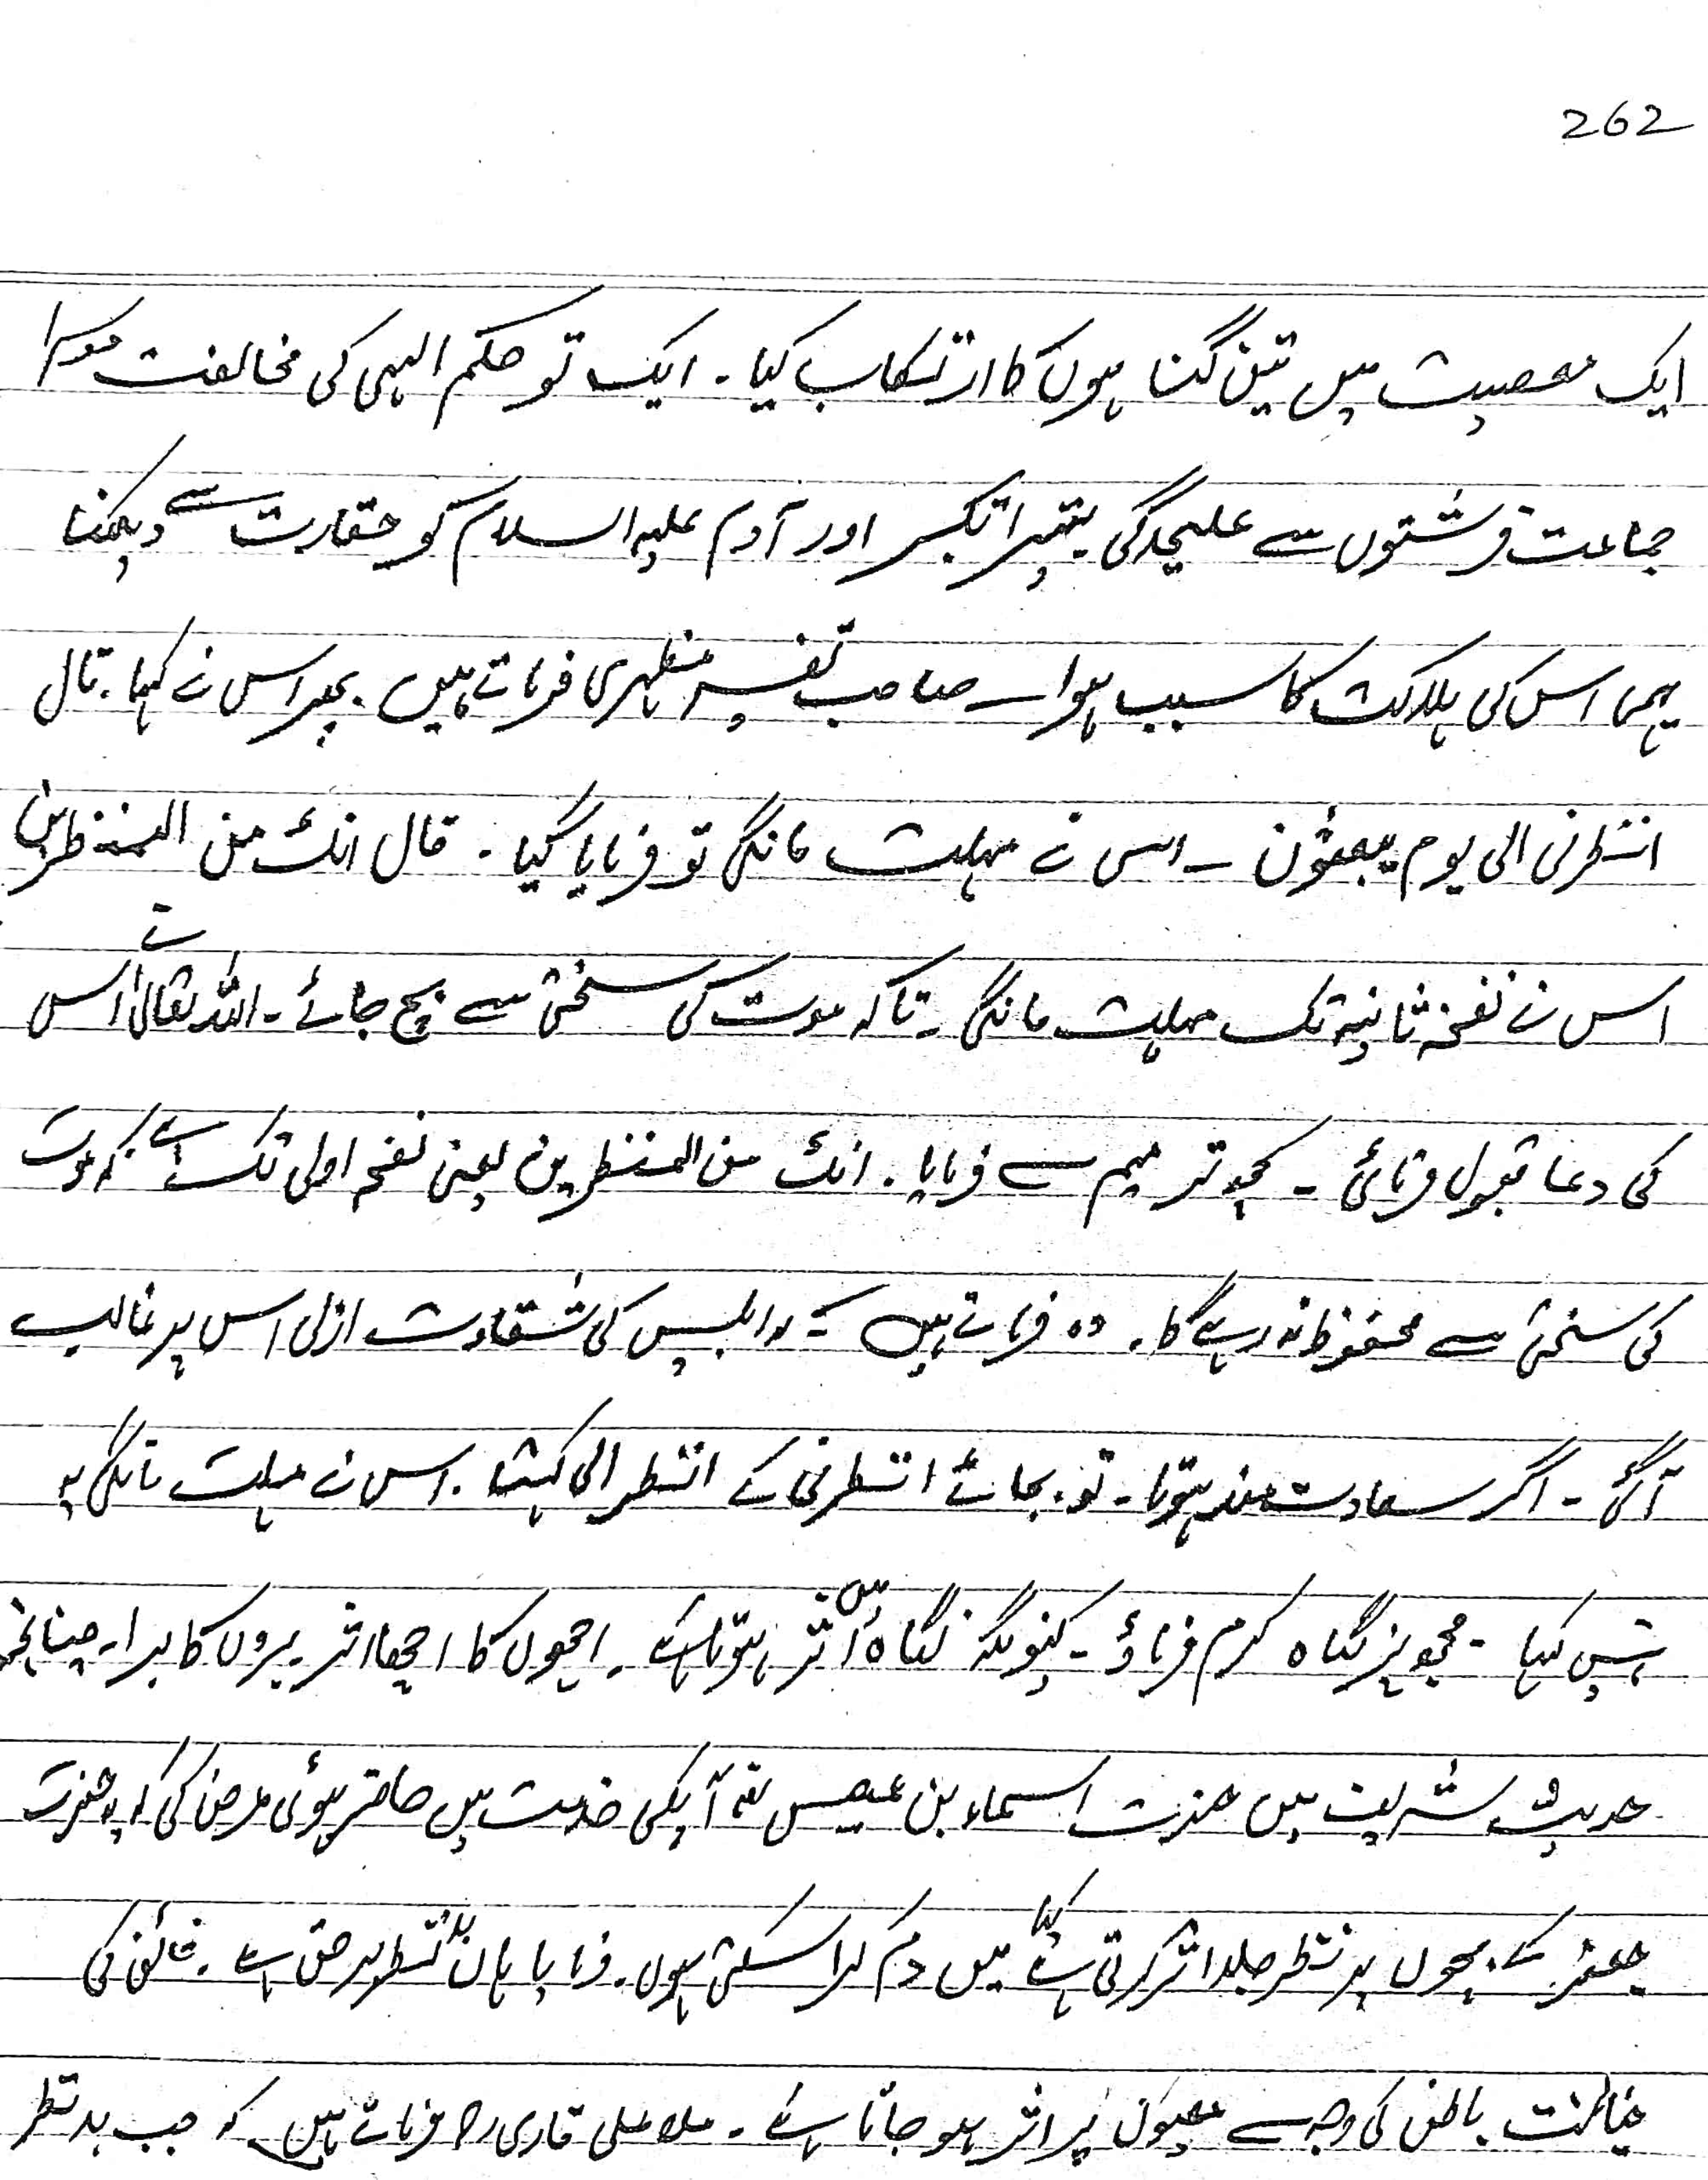 262
ایک معصیت میں تین گناہوں کا ارتکاب کیا۔ ایک تو حکم الہی کی مخالفت دوسرا
جماعت فرشتوں سے علیحدگی تیسرا تکبر اور آدم علیہ السلام کو حقارت سے دیکھنا
یہی اس کی ہلاکت کا سبب ہوا۔ صاحب تفسیر مظہری فرماتے ہیں۔ پھر اس نے کہا۔ قال
انظرنی الی یوم یبعثون ۔ اس نے مہلت مانگی تو فرمایا گیا۔ قال انک من المنظرین
اس نے نفخہ ثانیہ تک مہلت مانگی۔ تاکہ موت کی سختی سے بچ جائے۔ اللہ تعالیٰ نے اس
کی دعا قبول فرمائی ۔ کچھ ترمیم سے فرمایا۔ انک من المنظرین یعنی نفخہ اولی تک ہے کہ موت
کی سختی سے محفوظ نہ رہے گا۔ وہ فرماتے ہیں کہ ابلیس کی شقاوت ازلی اس پر غالب
آ گئی ۔ اگر سعادت مند ہوتا۔ تو بجائے انظرنی کے انظر الی کہتا۔ اس نے مہلت مانگی یہ
نہیں کہا ۔ مجھ پر نگاہ کرم فرماؤ۔ کیونکہ نگاہ میں اثر ہوتا ہے۔ اچھوں کا اچھا اثر بروں کا برا۔ چنانچہ
حدیث شریف میں حضرت اسماء بن عمیس آپکی خدمت میں حاضر ہوئی عرض کی کہ حضرت
جعفر کے بچوں پر نظر جلد اثر کرتی ہے کیا میں دم کرا سکتی ہوں۔ فرمایا ہاں نظر بد حق ہے۔ کی
خباثت باطن کی وجہ سے پر اثر ہو جاتا ہے ۔ ملا علی قاری رح فرماتے ہیں کہ جب بد نظر